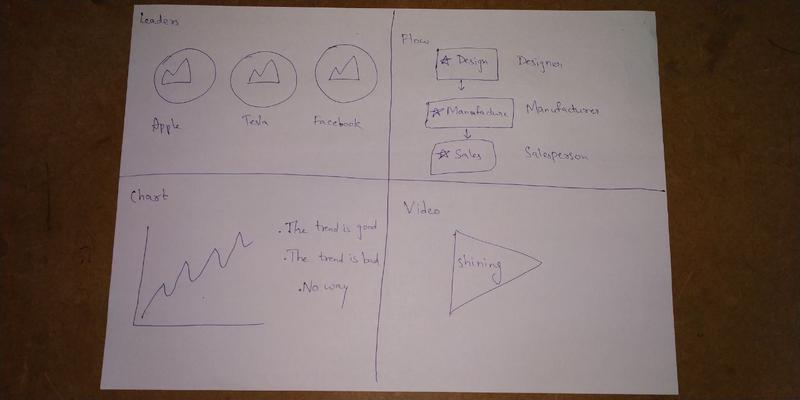 Leaders
Apple
Tesla
Facebook
Flow
Design
Designer
Manufacture
Manufacturer
Sales
Salesperson
Chart
.The trend is good
.The trend is bad
.No way
Video
shining